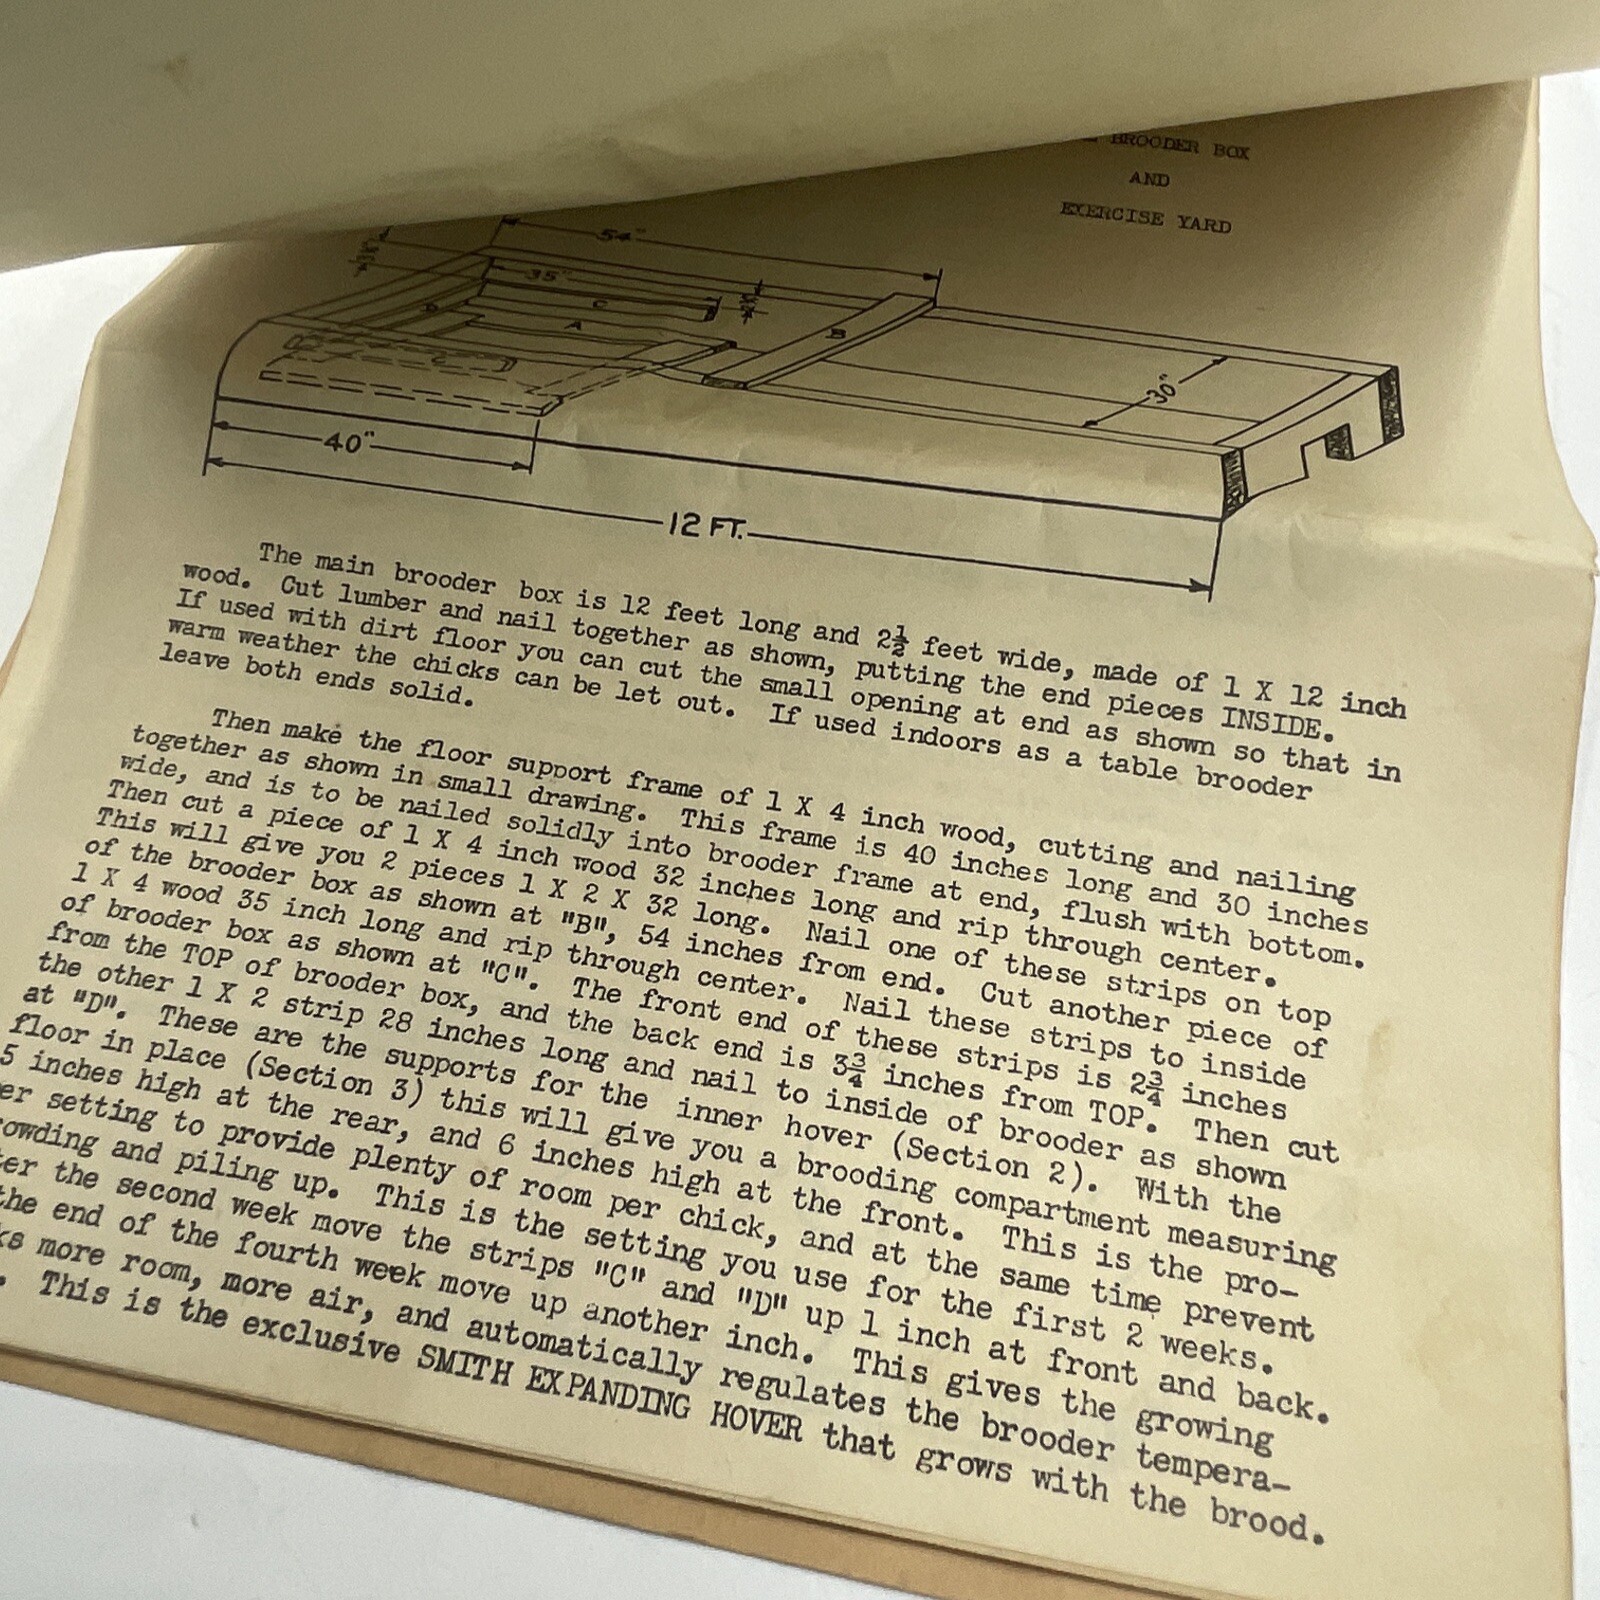 BROODER BOX
AND
EXERCISE YARD
54"
35"
C
D
A
B
30"
40"
12 FT.
The main brooder box is 12 feet long and 2½ feet wide, made of 1 X 12 inch
wood. Cut lumber and nail together as shown, putting the end pieces INSIDE.
If used with dirt floor you can cut the small opening at end as shown so that in
warm weather the chicks can be let out. If used indoors as a table brooder
leave both ends solid.
Then make the floor support frame of 1 X 4 inch wood, cutting and nailing
together as shown in small drawing. This frame is 40 inches long and 30 inches
wide, and is to be nailed solidly into brooder frame at end, flush with bottom.
Then cut a piece of 1 X 4 inch wood 32 inches long and rip through center.
This will give you 2 pieces 1 X 2 X 32 long. Nail one of these strips on top
of the brooder box as shown at "B", 54 inches from end. Cut another piece of
1 X 4 wood 35 inch long and rip through center. Nail these strips to inside
of brooder box as shown at "C". The front end of these strips is 2¾ inches
from the TOP of brooder box, and the back end is 3¾ inches from TOP. Then cut
the other 1 X 2 strip 28 inches long and nail to inside of brooder as shown
at "D". These are the supports for the inner hover (Section 2). With the
floor in place (Section 3) this will give you a brooding compartment measuring
5 inches high at the rear, and 6 inches high at the front. This is the pro-
er setting to provide plenty of room per chick, and at the same time prevent
owding and piling up. This is the setting you use for the first 2 weeks.
ter the second week move the strips "C" and "D" up 1 inch at front and back.
the end of the fourth week move up another inch. This gives the growing
ks more room, more air, and automatically regulates the brooder tempera-
. This is the exclusive SMITH EXPANDING HOVER that grows with the brood.